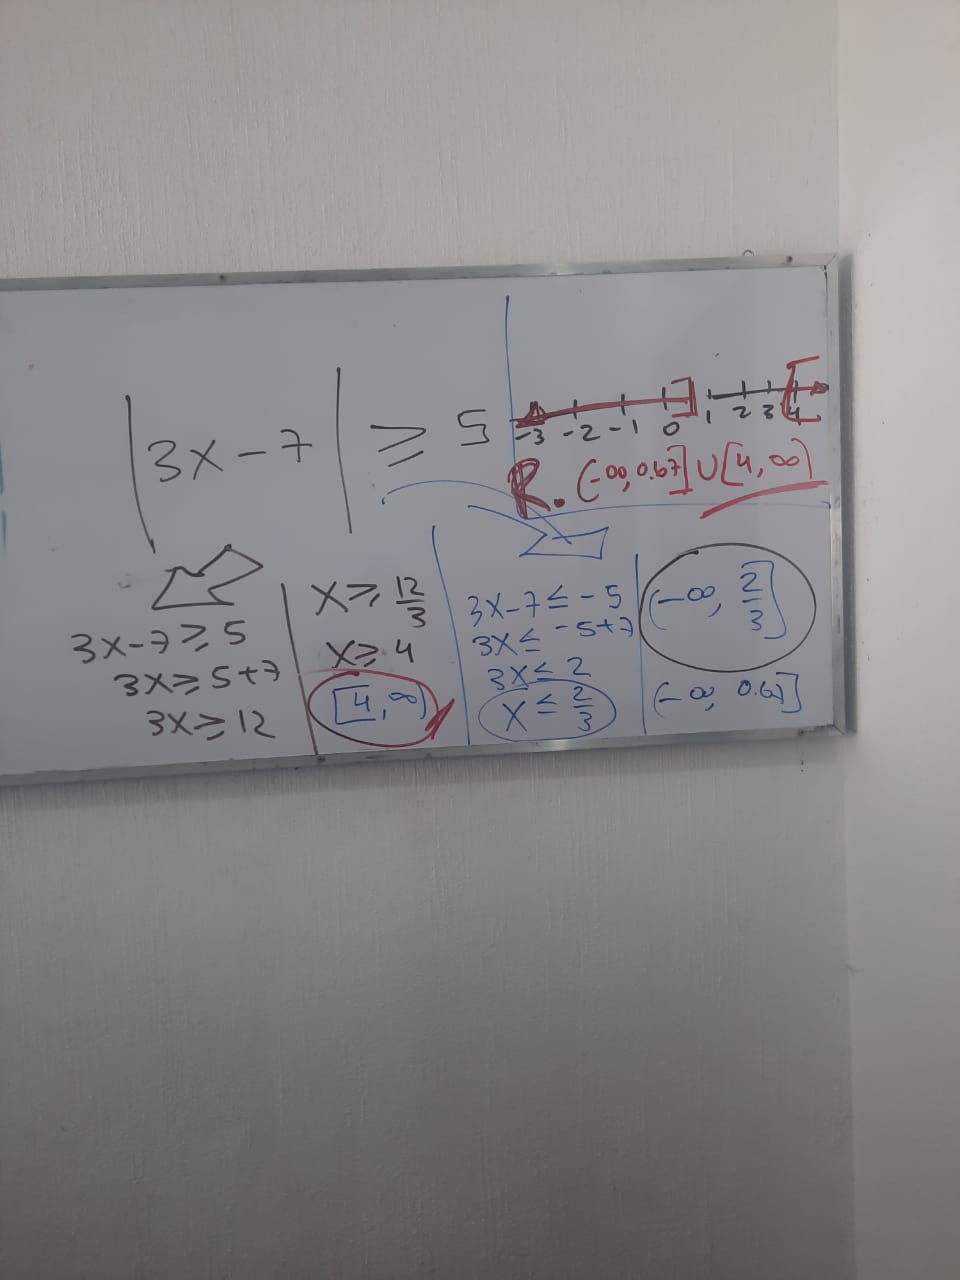 |3x-7| ≥ 5
-3 -2 -1 0 1 2 3 4
R. (-∞, 0.67] ∪ [4, ∞)
3x-7 ≥ 5
3x ≥ 5+7
3x ≥ 12
x ≥ 12/3
x ≥ 4
[4, ∞)
3x-7 ≤ -5
3x ≤ -5+7
3x ≤ 2
x ≤ 2/3
(-∞, 2/3]
(-∞, 0.67]